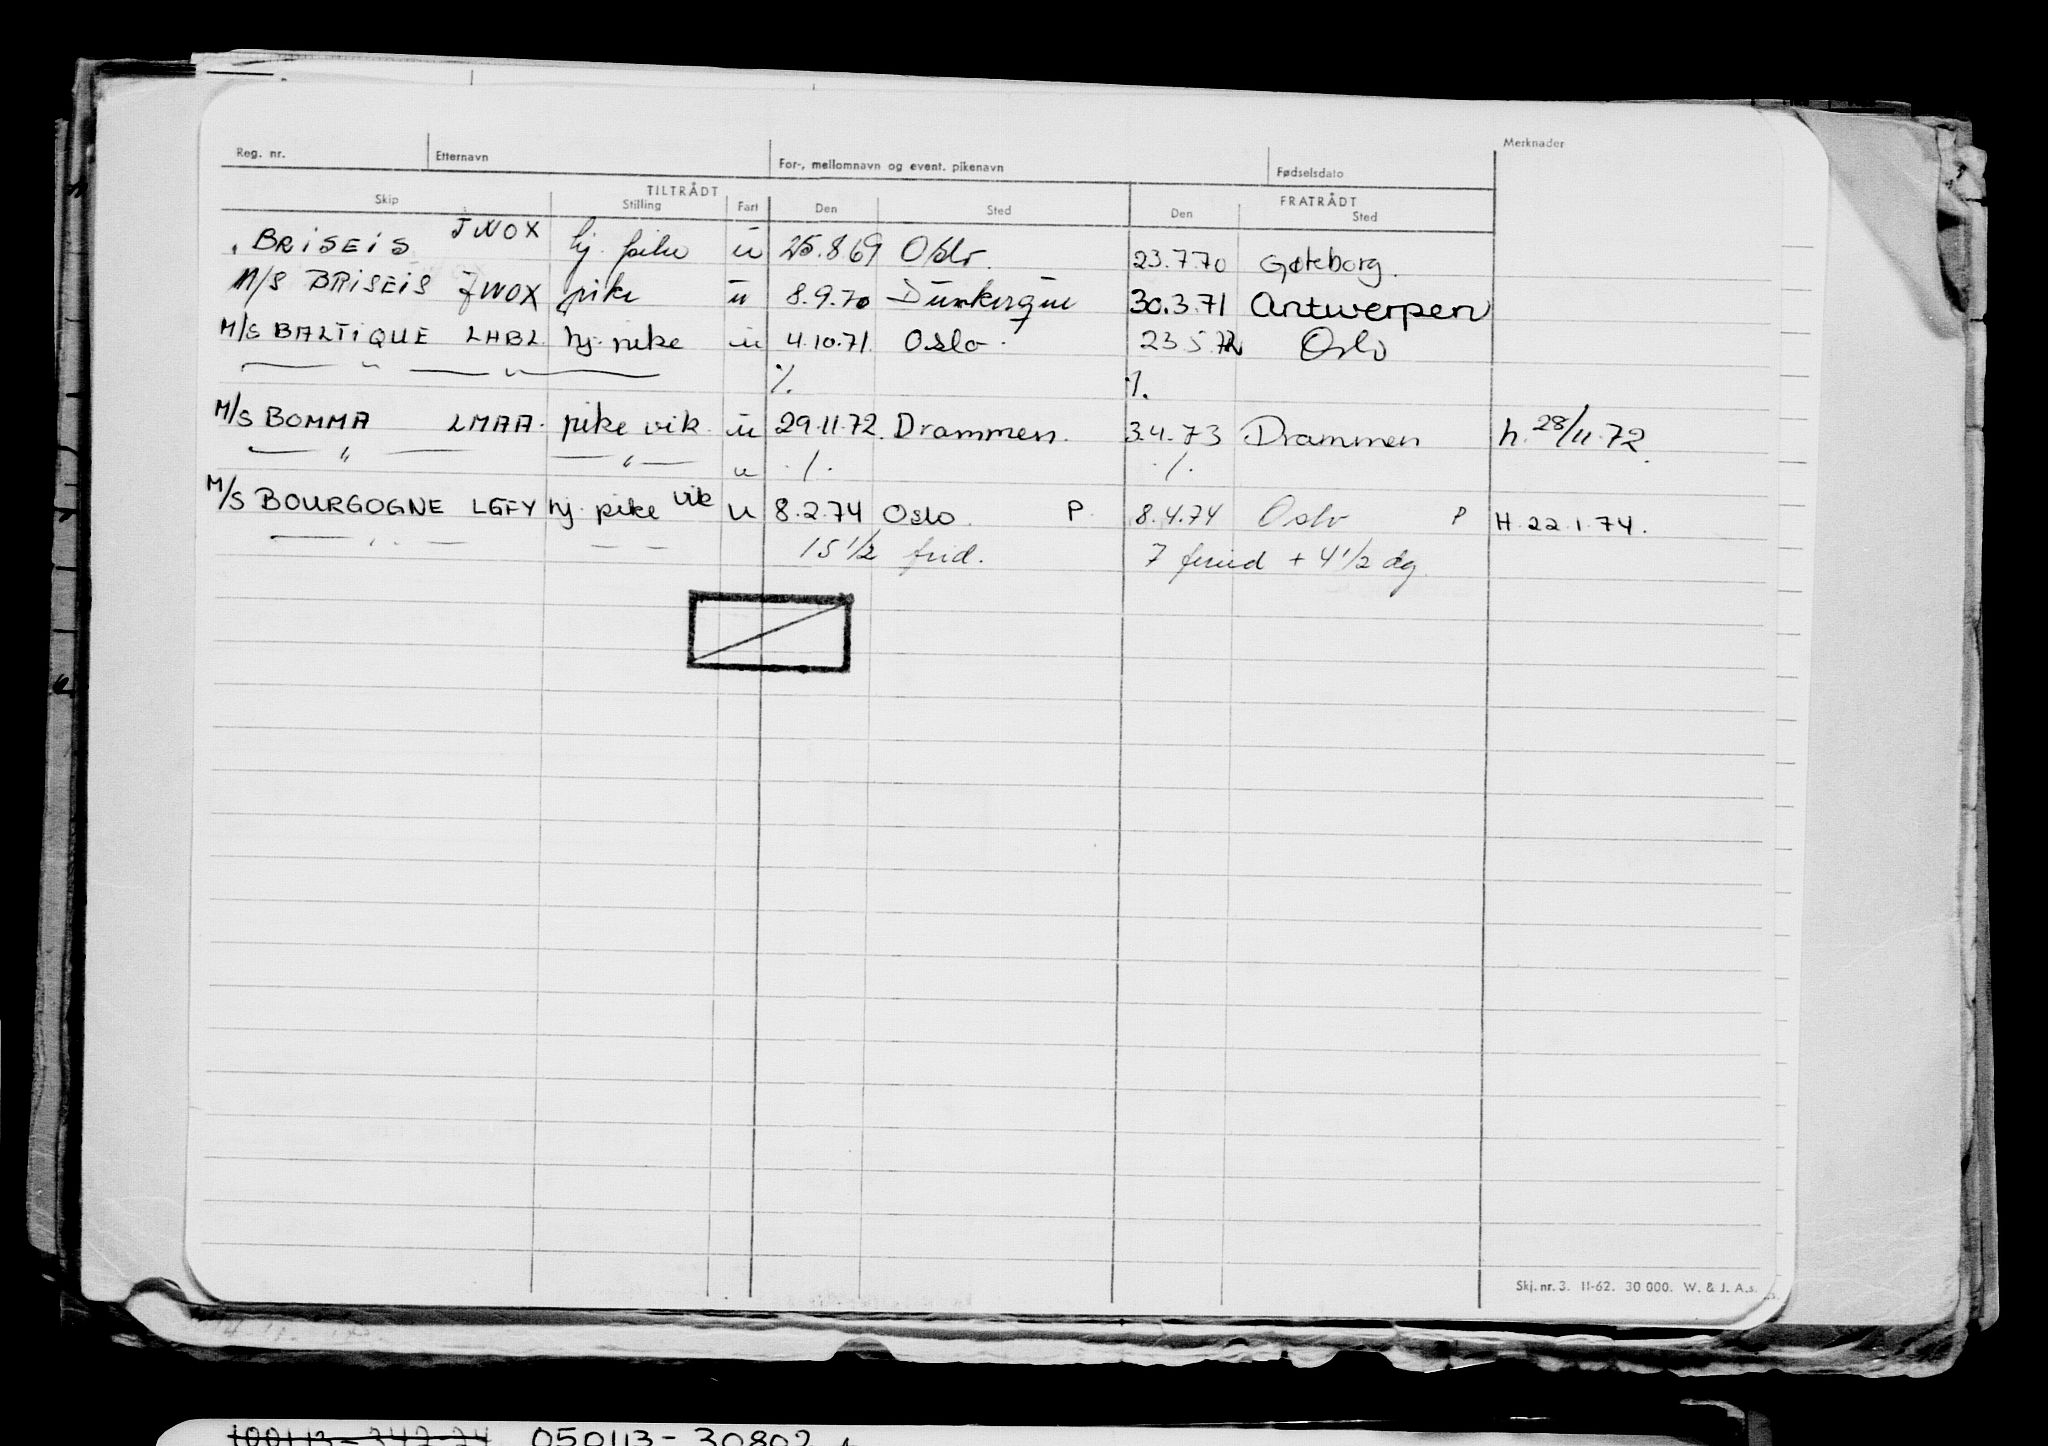 Reg. nr. Etternavn For-, mellomnavn og event. pikenavn Fødselsdato Merknader
TILTRÅDT FRATRÅDT
Skip Stilling Fart Den Sted Den Sted
BRISEIS JWOX hj. pike u 25.8.69 Oslo. 23.7.70 Gøteborg.
M/S BRISEIS JWOX pike u 8.9.70 Dunkerque 30.3.71 Antwerpen
M/S BALTIQUE LHBL hj. pike u 4.10.71. Oslo. 23.5.72 Oslo
— " — " — ./. ./.
M/S BOMMA LMAA. pike vik. u 29.11.72. Drammen. 3.4.73 Drammen h. 28/11.72.
— " — — " — u ./. ./.
M/S BOURGOGNE LGFY hj. pike vik u 8.2.74 Oslo. P. 8.4.74 Oslo P H. 22.1.74.
— " — — — 15 1/2 frid. 7 frid + 4 1/2 dg.
Skj. nr. 3. 11-62. 30 000. W. & J. A.s.
100113-34224 050113-30802